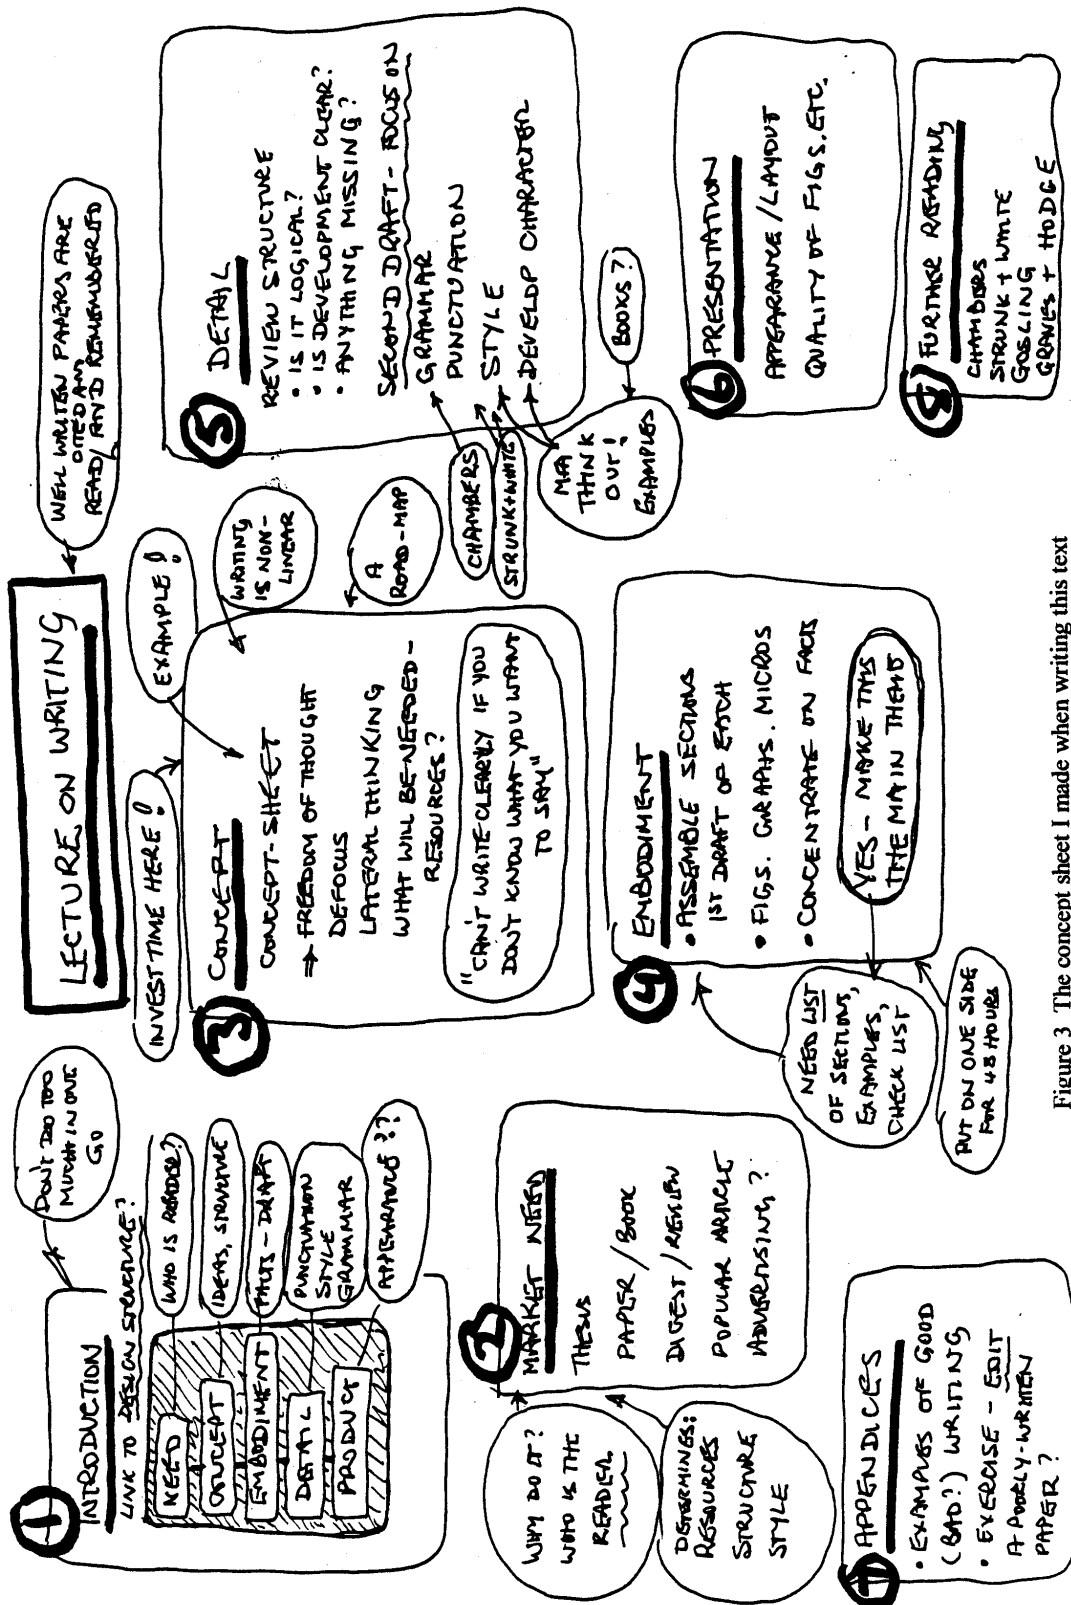 LECTURE ON WRITING
WELL WRITTEN PAPERS ARE
CITED AND
READ / AND REMEMBERED
DON'T DO TOO
MUCH IN ONE
GO
1
INTRODUCTION
LINK TO DESIGN STRUCTURE?
NEED
WHO IS READER?
CONCEPT
IDEAS, STRUCTURE
EMBODIMENT
FACTS - DRAFT
DETAIL
PUNCTUATION
STYLE
GRAMMAR
PRODUCT
APPEARANCE??
2
MARKET NEED
THESIS
PAPER / BOOK
DIGEST / REVIEW
POPULAR ARTICLE
ADVERTISING?
WHY DO IT?
WHO IS THE
READER
DETERMINES:
RESOURCES
STRUCTURE
STYLE
INVEST TIME HERE!
EXAMPLE!
3
CONCEPT
CONCEPT-SHEET
⇒ FREEDOM OF THOUGHT
DEFOCUS
LATERAL THINKING
WHAT WILL BE NEEDED -
RESOURCES?
"CAN'T WRITE CLEARLY IF YOU
DON'T KNOW WHAT YOU WANT
TO SAY"
WRITING
IS NON-
LINEAR
A
ROAD-MAP
4
EMBODIMENT
• ASSEMBLE SECTIONS
1ST DRAFT OF EACH
• FIGS. GRAPHS. MICROS
• CONCENTRATE ON FACTS
YES - MAKE THIS
THE MAIN THEME
NEED LIST
OF SECTIONS,
EXAMPLES,
CHECK LIST
PUT ON ONE SIDE
FOR 48 HOURS
5
DETAIL
REVIEW STRUCTURE
• IS IT LOGICAL?
• IS DEVELOPMENT CLEAR?
• ANYTHING MISSING?
SECOND DRAFT - FOCUS ON
GRAMMAR
PUNCTUATION
STYLE
DEVELOP CHARACTER
CHAMBERS
STRUNK + WHITE
MFA
THINK
OUT!
EXAMPLES
BOOKS?
6
PRESENTATION
APPEARANCE / LAYOUT
QUALITY OF FIGS. ETC.
7
APPENDICES
• EXAMPLES OF GOOD
(BAD?) WRITING
• EXERCISE - EDIT
A POORLY-WRITTEN
PAPER?
8
FURTHER READING
CHAMBERS
STRUNK + WHITE
GOSLING
GRAVES + HODGE
Figure 3 The concept sheet I made when writing this text